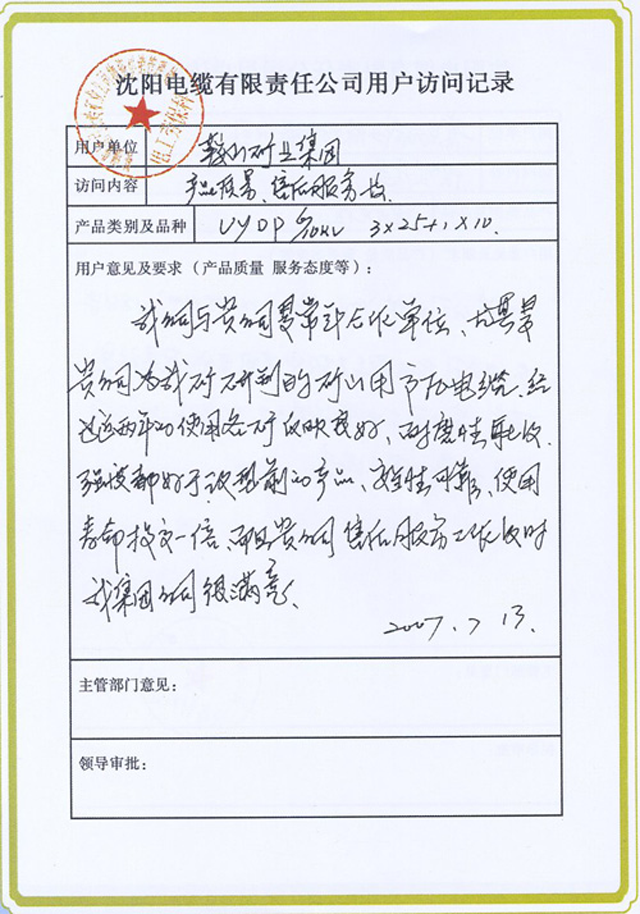 沈阳电缆有限责任公司用户访问记录
用户单位 鞍山矿业集团
访问内容 产品质量、售后服务
产品类别及品种 UYDP 6/10KV 3×25+1×10.
用户意见及要求（产品质量 服务态度等）：
我公司与贵公司是常年合作单位、尤其是
贵公司为我矿研制的矿山用高压电缆、经
过近两年的使用各矿反映良好、耐磨性
强度都好于改型前的产品、安全性可靠、使用
寿命提高一倍、而且贵公司售后服务工作及时
我集团公司很满意.
2007.7 13.
主管部门意见：
领导审批：